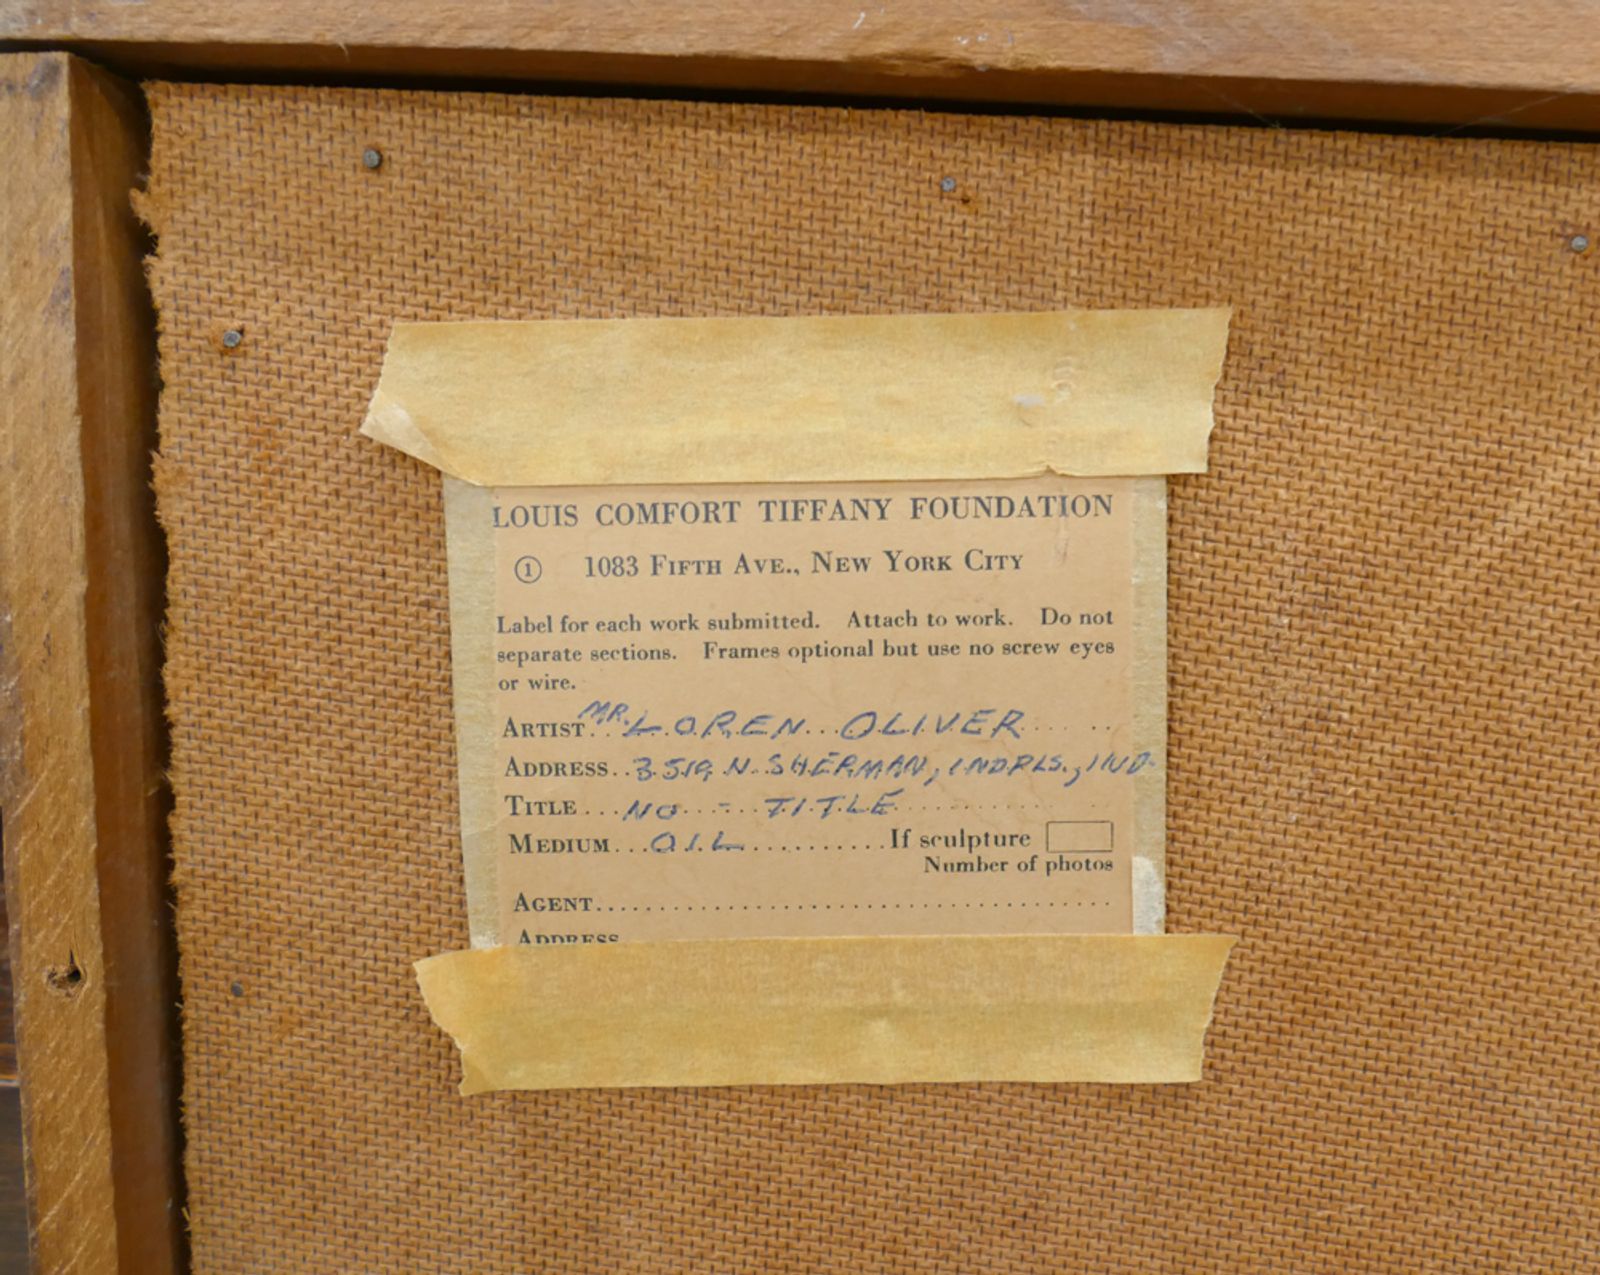 LOUIS COMFORT TIFFANY FOUNDATION
① 1083 FIFTH AVE., NEW YORK CITY
Label for each work submitted. Attach to work. Do not
separate sections. Frames optional but use no screw eyes
or wire.
ARTIST MR. LOREN OLIVER
ADDRESS 3519 N. SHERMAN, INDPLS., IND.
TITLE NO - TITLE
MEDIUM OIL If sculpture
Number of photos
AGENT
ADDRESS